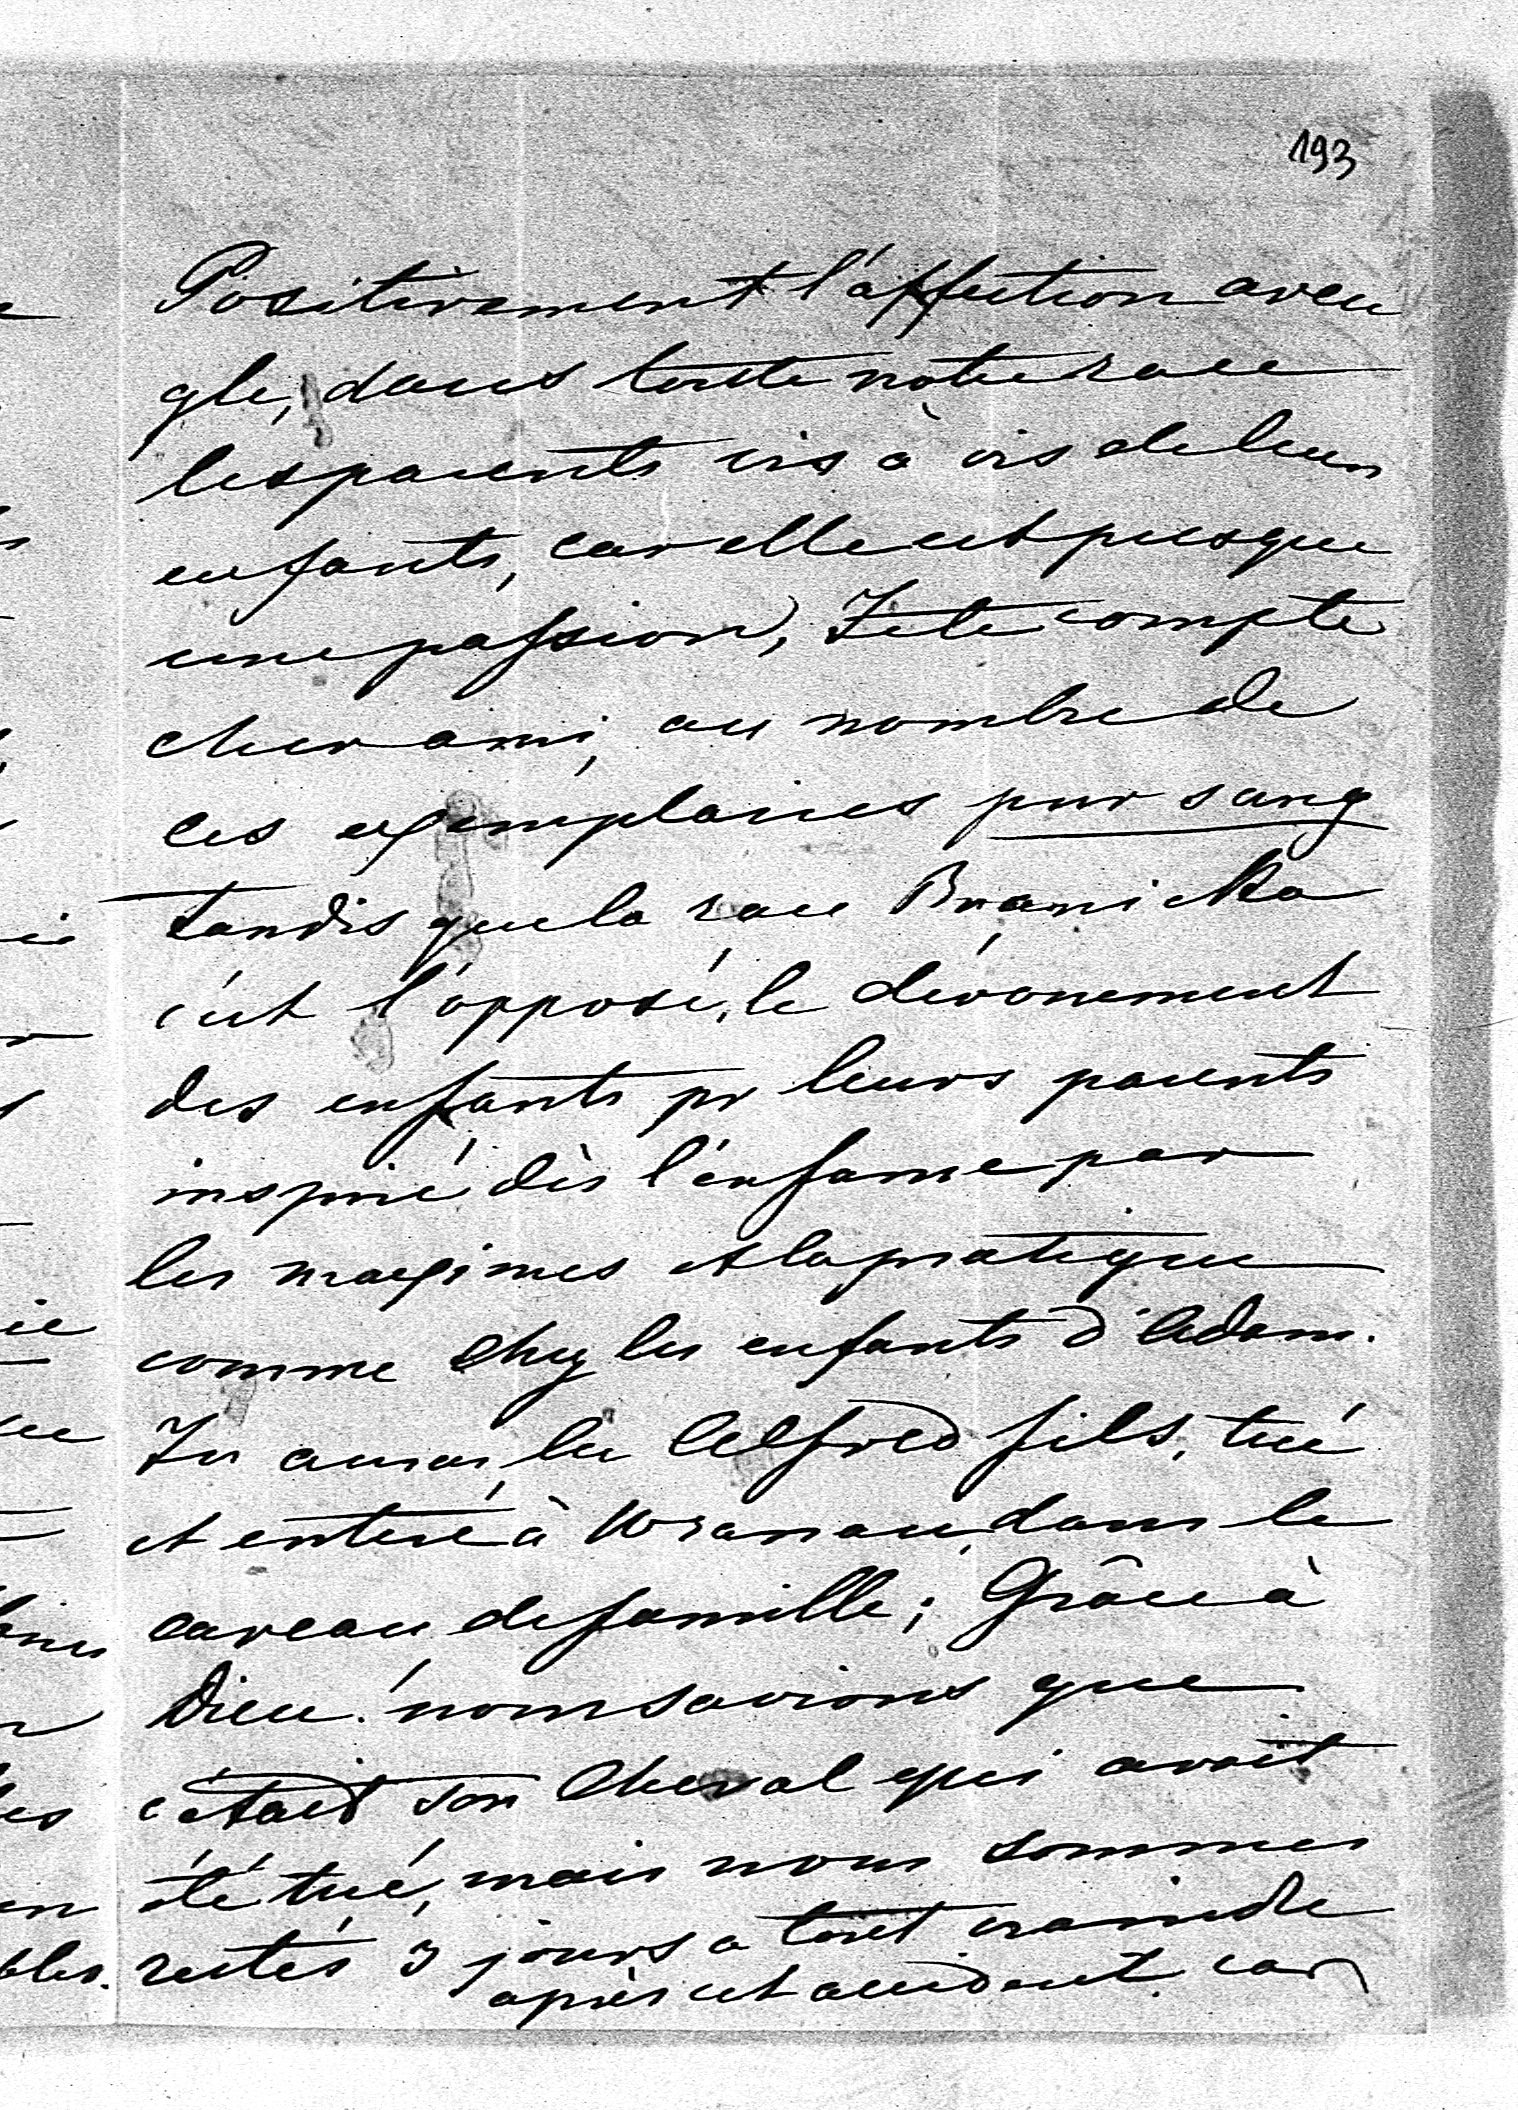 193
Positivement l'affection aveu
gle, dans toute notre race
les parents vis à vis de leurs
enfants, car elle est presque
une passion, Je te compte
cher ami, au nombre de
ces exemplaires pur sang
tandis que la race Branicka
c'est l'opposé, le dévouement
des enfants pr leurs parents
inspiré dès l'enfance par
les maximes et la pratique
comme chez les enfants d'Adam.
Tu auras lu Alfred fils, tué
et enterré à Wranau, dans le
caveau de famille; Grâce à
Dieu! nous savions que
c'était son cheval qui avait
été tué, mais nous sommes
restés 3 jours a tout craindre
après cet accident. car